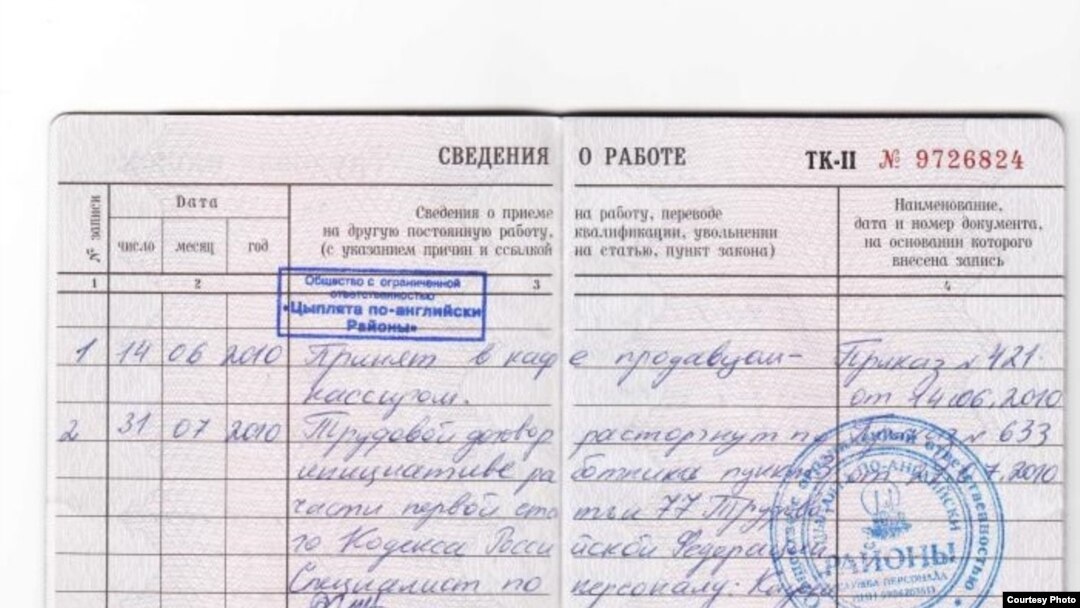 СВЕДЕНИЯ О РАБОТЕ ТК-II № 9726824
№ записи
Дата
число месяц год
Сведения о приеме на работу, переводе
на другую постоянную работу, квалификации, увольнении
(с указанием причин и ссылкой на статью, пункт закона)
Наименование,
дата и номер документа,
на основании которого
внесена запись
1 2 3 4
Общество с ограниченной
ответственностью
«Цыплята по-английски
Районы»
1 14 06 2010 Принят в кафе продавцом- Приказ № 421
кассиром. от 14.06.2010
2 31 07 2010 Трудовой договор расторгнут по № 633
инициативе работника пункт 3 от 7.2010
части первой статьи 77 Трудово
го Кодекса Российской Федерации
Специалист по персоналу:
ПО-АНГЛИЙСКИ
РАЙОНЫ
СЛУЖБА ПЕРСОНАЛА
ответственностью
Courtesy Photo